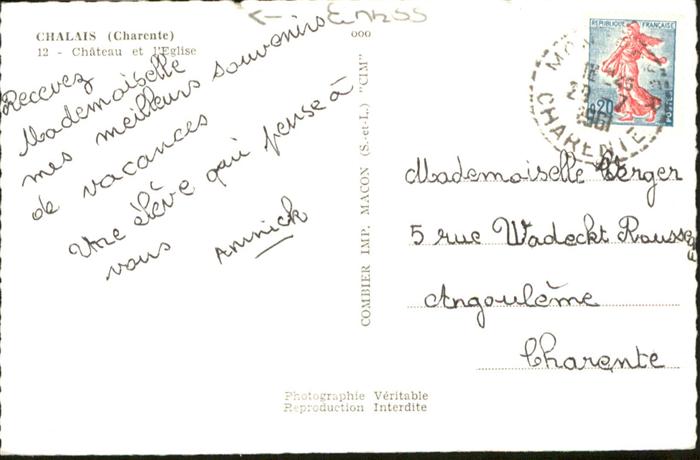 CHALAIS (Charente)
12 - Château et l'Eglise
Recevez
Mademoiselle
mes meilleurs souvenirs
de vacances
Une élève qui pense à
vous Annick
ooo
COMBIER IMP. MACON (S.-et-L.) "CIM"
REPUBLIQUE FRANÇAISE
0,20
POSTES
1961
CHARENTE
Mademoiselle Verger
5 rue Wadeckt Rousse
Angoulème
Charente
Photographie Véritable
Reproduction Interdite